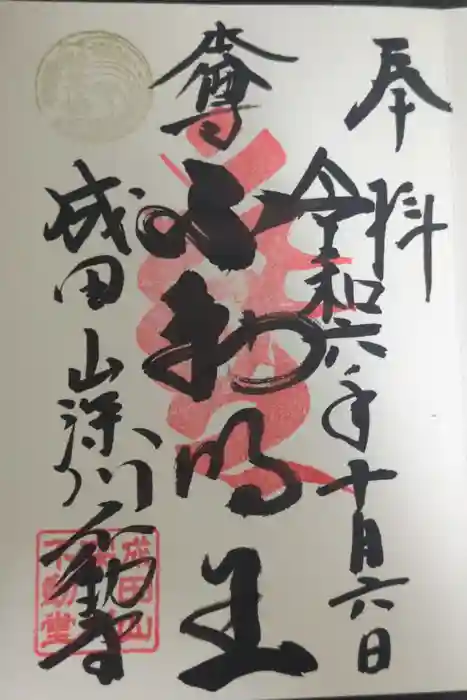 奉拝
令和六年十月六日
大本尊
不動明王
成田山深川不動尊
成田山
不動堂